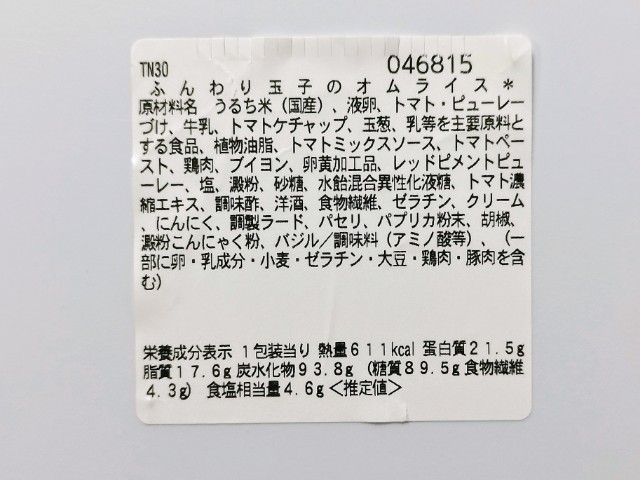 TN30 046815
ふんわり玉子のオムライス＊
原材料名　うるち米（国産）、液卵、トマト・ピューレー
づけ、牛乳、トマトケチャップ、玉葱、乳等を主要原料と
する食品、植物油脂、トマトミックスソース、トマトペー
スト、鶏肉、ブイヨン、卵黄加工品、レッドピメントピュ
ーレー、塩、澱粉、砂糖、水飴混合異性化液糖、トマト濃
縮エキス、調味酢、洋酒、食物繊維、ゼラチン、クリーム
、にんにく、調製ラード、パセリ、パプリカ粉末、胡椒、
澱粉こんにゃく粉、バジル／調味料（アミノ酸等）、（一
部に卵・乳成分・小麦・ゼラチン・大豆・鶏肉・豚肉を含
む）
栄養成分表示 1包装当り 熱量611kcal 蛋白質21.5g
脂質17.6g 炭水化物93.8g（糖質89.5g 食物繊維
4.3g）　食塩相当量4.6g＜推定値＞